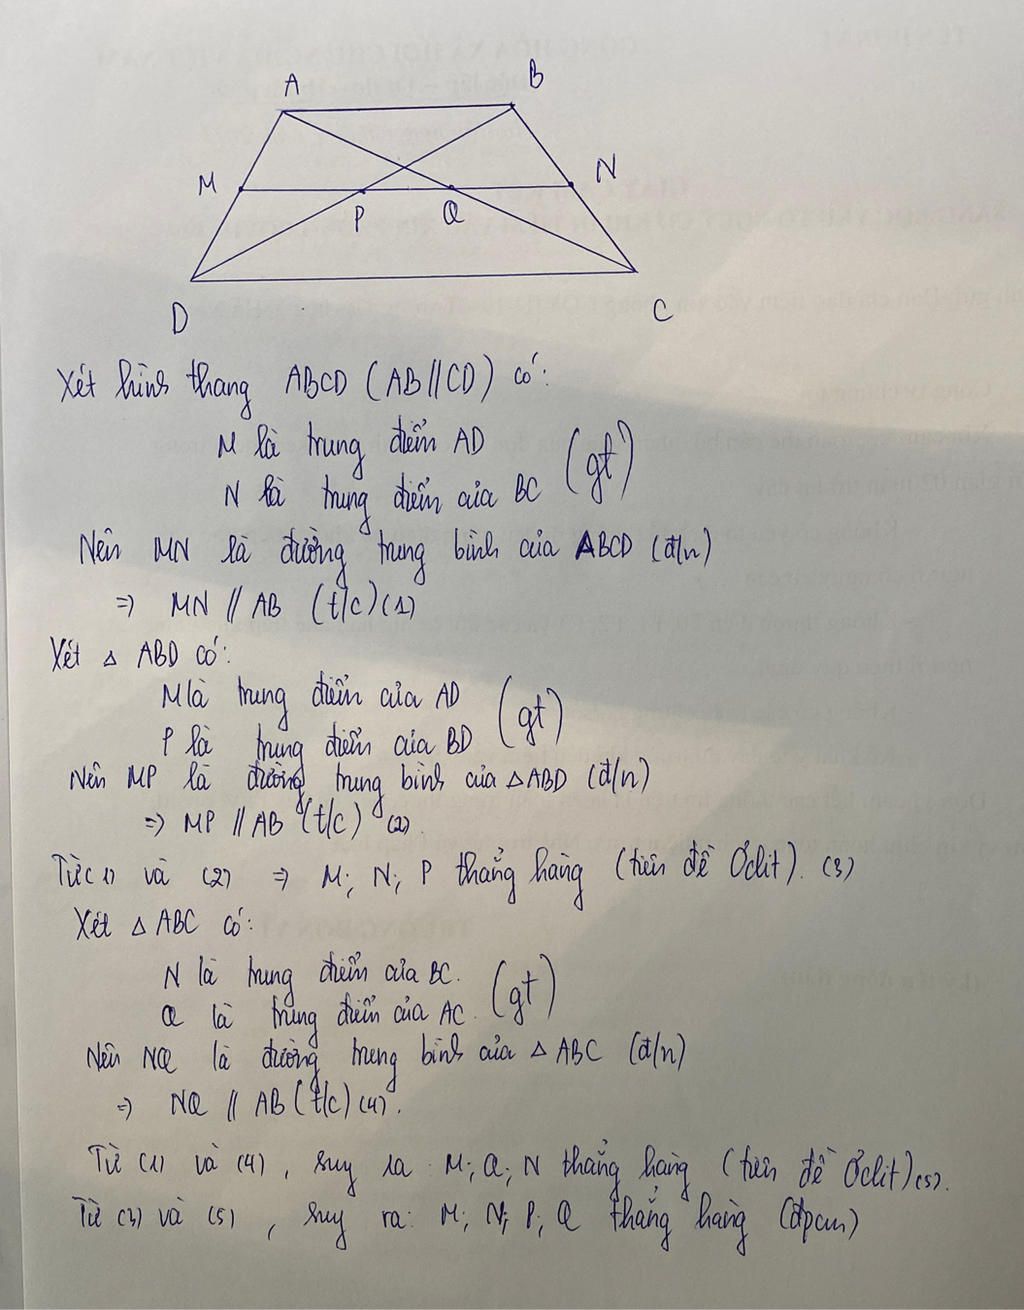 A
B
M
N
P
Q
D
C
Xét hình thang ABCD (AB//CD) có:
M là trung điểm AD
N là trung điểm của BC (gt)
Nên MN là đường trung bình của ABCD (đ/n)
=) MN // AB (t/c) (1)
Xét △ ABD có:
M là trung điểm của AD
P là trung điểm của BD (gt)
Nên MP là đường trung bình của △ABD (đ/n)
=) MP // AB (t/c) (2).
Từ (1) và (2) =) M; N; P thẳng hàng (tiên đề Ơclit). (3)
Xét △ ABC có:
N là trung điểm của BC.
Q là trung điểm của AC. (gt)
Nên NQ là đường trung bình của △ ABC (đ/n)
=) NQ // AB (t/c) (4).
Từ (1) và (4), suy ra: M; Q; N thẳng hàng (tiên đề Ơclit) (5).
Từ (3) và (5), suy ra: M; N; P; Q thẳng hàng (đpcm)